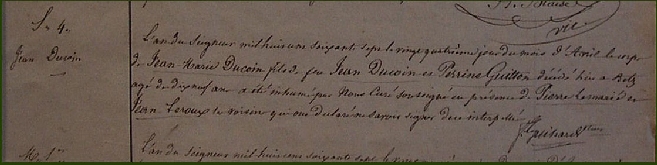 S. 4.
Jean Ducoin
L'an du Seigneur mil huit cens soixante sept le vingt quatrième jour du mois d'Avril le corps
de Jean Marie Ducoin fils de feu Jean Ducoin et Perrine Guitton décédé hier à
agé de dix neuf ans a été inhumé par Nous Curé soussigné en présence de Pierre et
Jean Leroux le voisin qui ont déclaré ne savoir signer de ce interpellés
L'an du Seigneur mil huit cens soixante sept le